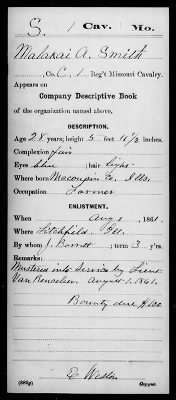 S. | 1 | Cav. | Mo.
Malakai A. Smith
, Co. C, 1 Reg't Missouri Cavalry.
Appears on
Company Descriptive Book
of the organization named above.
DESCRIPTION.
Age 28 years; height 5 feet 11 1/2 inches.
Complexion fair
Eyes blue ; hair light
Where born Macoupin Co, Ills.
Occupation Farmer
ENLISTMENT.
When Aug 1 , 1861.
Where Litchfield, Ill.
By whom J. Barrett ; term 3 y'rs.
Remarks:
Mustered into Service by Lieut
Van Renselaer. August 1, 1861.
Bounty due $100
E. Weston
(383g) Copyist.